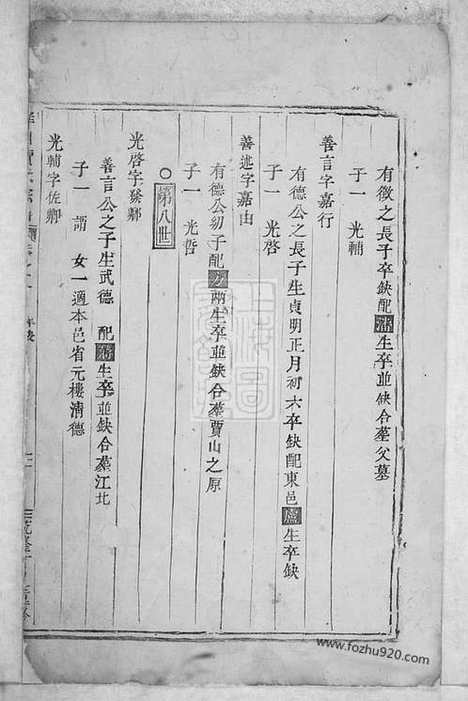 有徵之長子卒缺配生卒並缺合葬父墓
子一 光輔
善言字嘉行
有德公之長子生貞明正月初六卒缺配東邑盧生卒缺
子一 光啓
善述字嘉由
有德公幼子配方兩生卒並缺合葬賈山之原
子一 光哲
第八世
光啓字發卿
善言公之子生武德 配生卒並缺合葬江北
子一 謂 女一適本邑省元樓淸德
光輔字佐卿
www.fozhu920.com